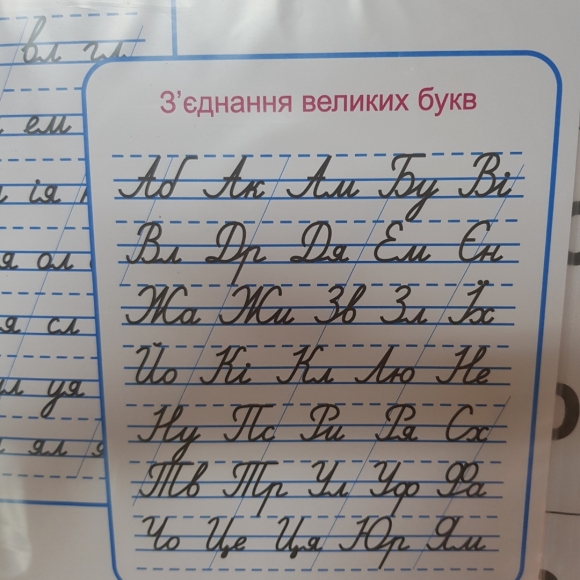 вл гл
ем
ія
я ол
я сл
л уя
ял я
З’єднання великих букв
Аб Ак Ам Бу Ві
Вл Др Дя Ем Єн
Жа Жи Зв Зл Їх
Йо Кі Кл Лю Не
Ну Пс Ри Ря Сх
Тв Тр Ул Уф Фа
Чо Це Ця Юр Ям